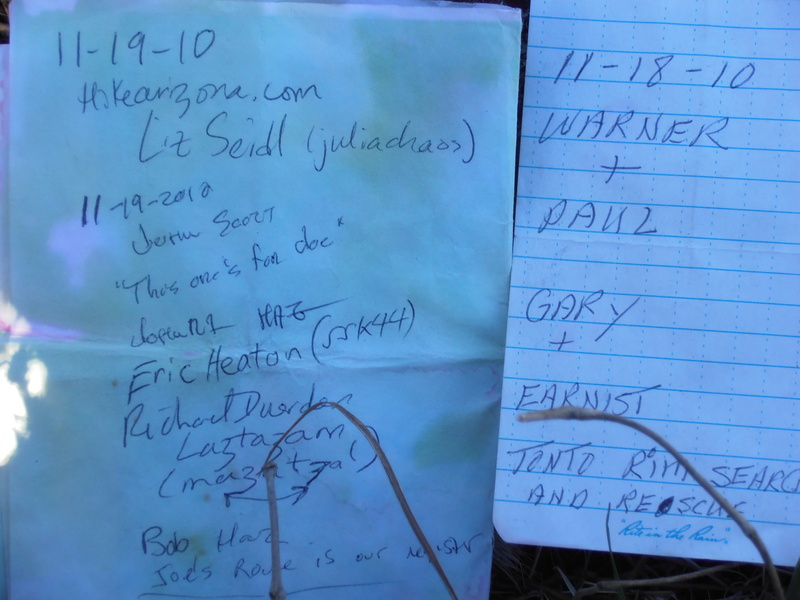 11-19-10
Hikearizona.com
Liz Seidl (juliachaos)
11-19-2010
Scott
"This one's for doc"
HAZ
Eric Heaton (ssk44)
Richard Duerden
Laztazam
(mazatzal)
Bob
Joe's Route is our
11-18-10
WARNER
+
PAUL
GARY
+
EARNIST
TONTO RIM SEARC
AND RESCUE
"Rite in the Rain"